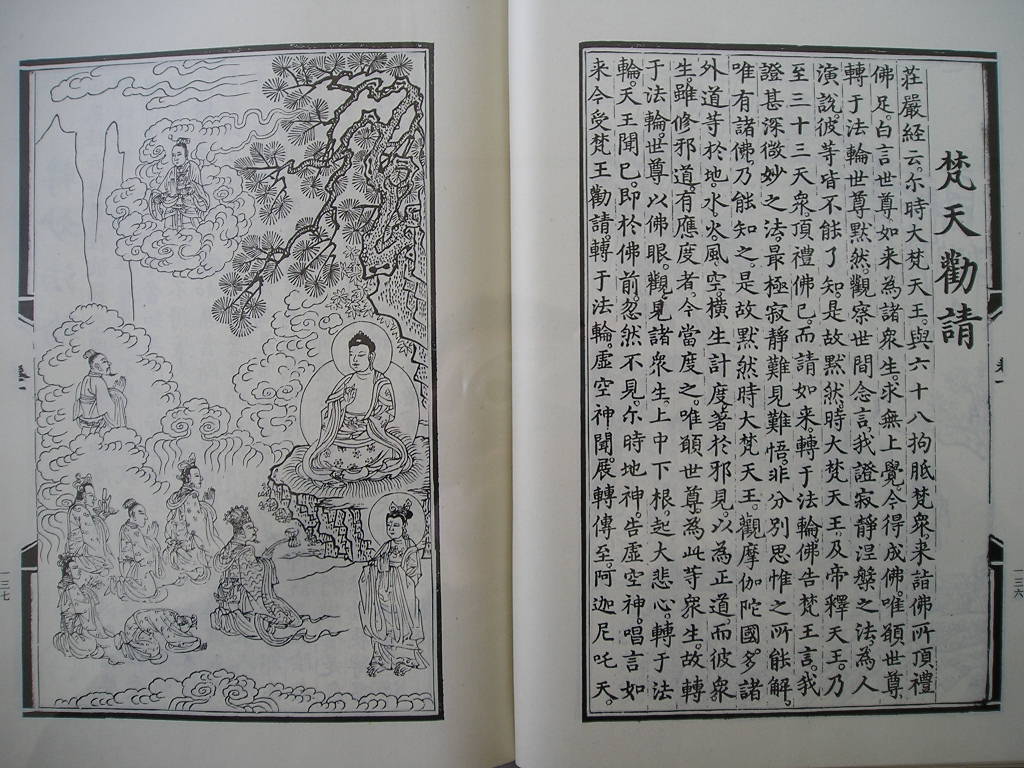 梵天勸請
莊嚴經云。尒時大梵天王。與六十八拘胝梵衆。来詣佛所頂禮
佛足。白言世尊如来為諸衆生。求無上覺今得成佛。唯願世尊
轉于法輪世尊默然。觀察世間念言我證寂靜涅槃之法。為人
演說。彼等皆不能了知是故默然時大梵天王。及帝釋天王。乃
至三十三天衆。頂禮佛已。而請如来轉于法輪。佛告梵王言。我
證甚深微妙之法最極寂靜難見難悟。非分別思惟之所能解。
唯有諸佛。乃能知之。是故默然時大梵天王。觀摩伽陀國。多諸
外道等於地水火風空橫生計度著於邪見。以為正道而彼衆
生。雖修邪道。有應度者。今當度之。唯願世尊為此等衆生。故轉
于法輪。世尊以佛眼。觀見諸衆生。上中下根。起大悲心。轉于法
輪。天王聞已。即於佛前。忽然不見。尒時地神告虛空神。唱言如
来今受梵王勸請轉于法輪。虛空神聞。展轉傳至。阿迦尼吒天。
卷一
一三六
卷一
一三七